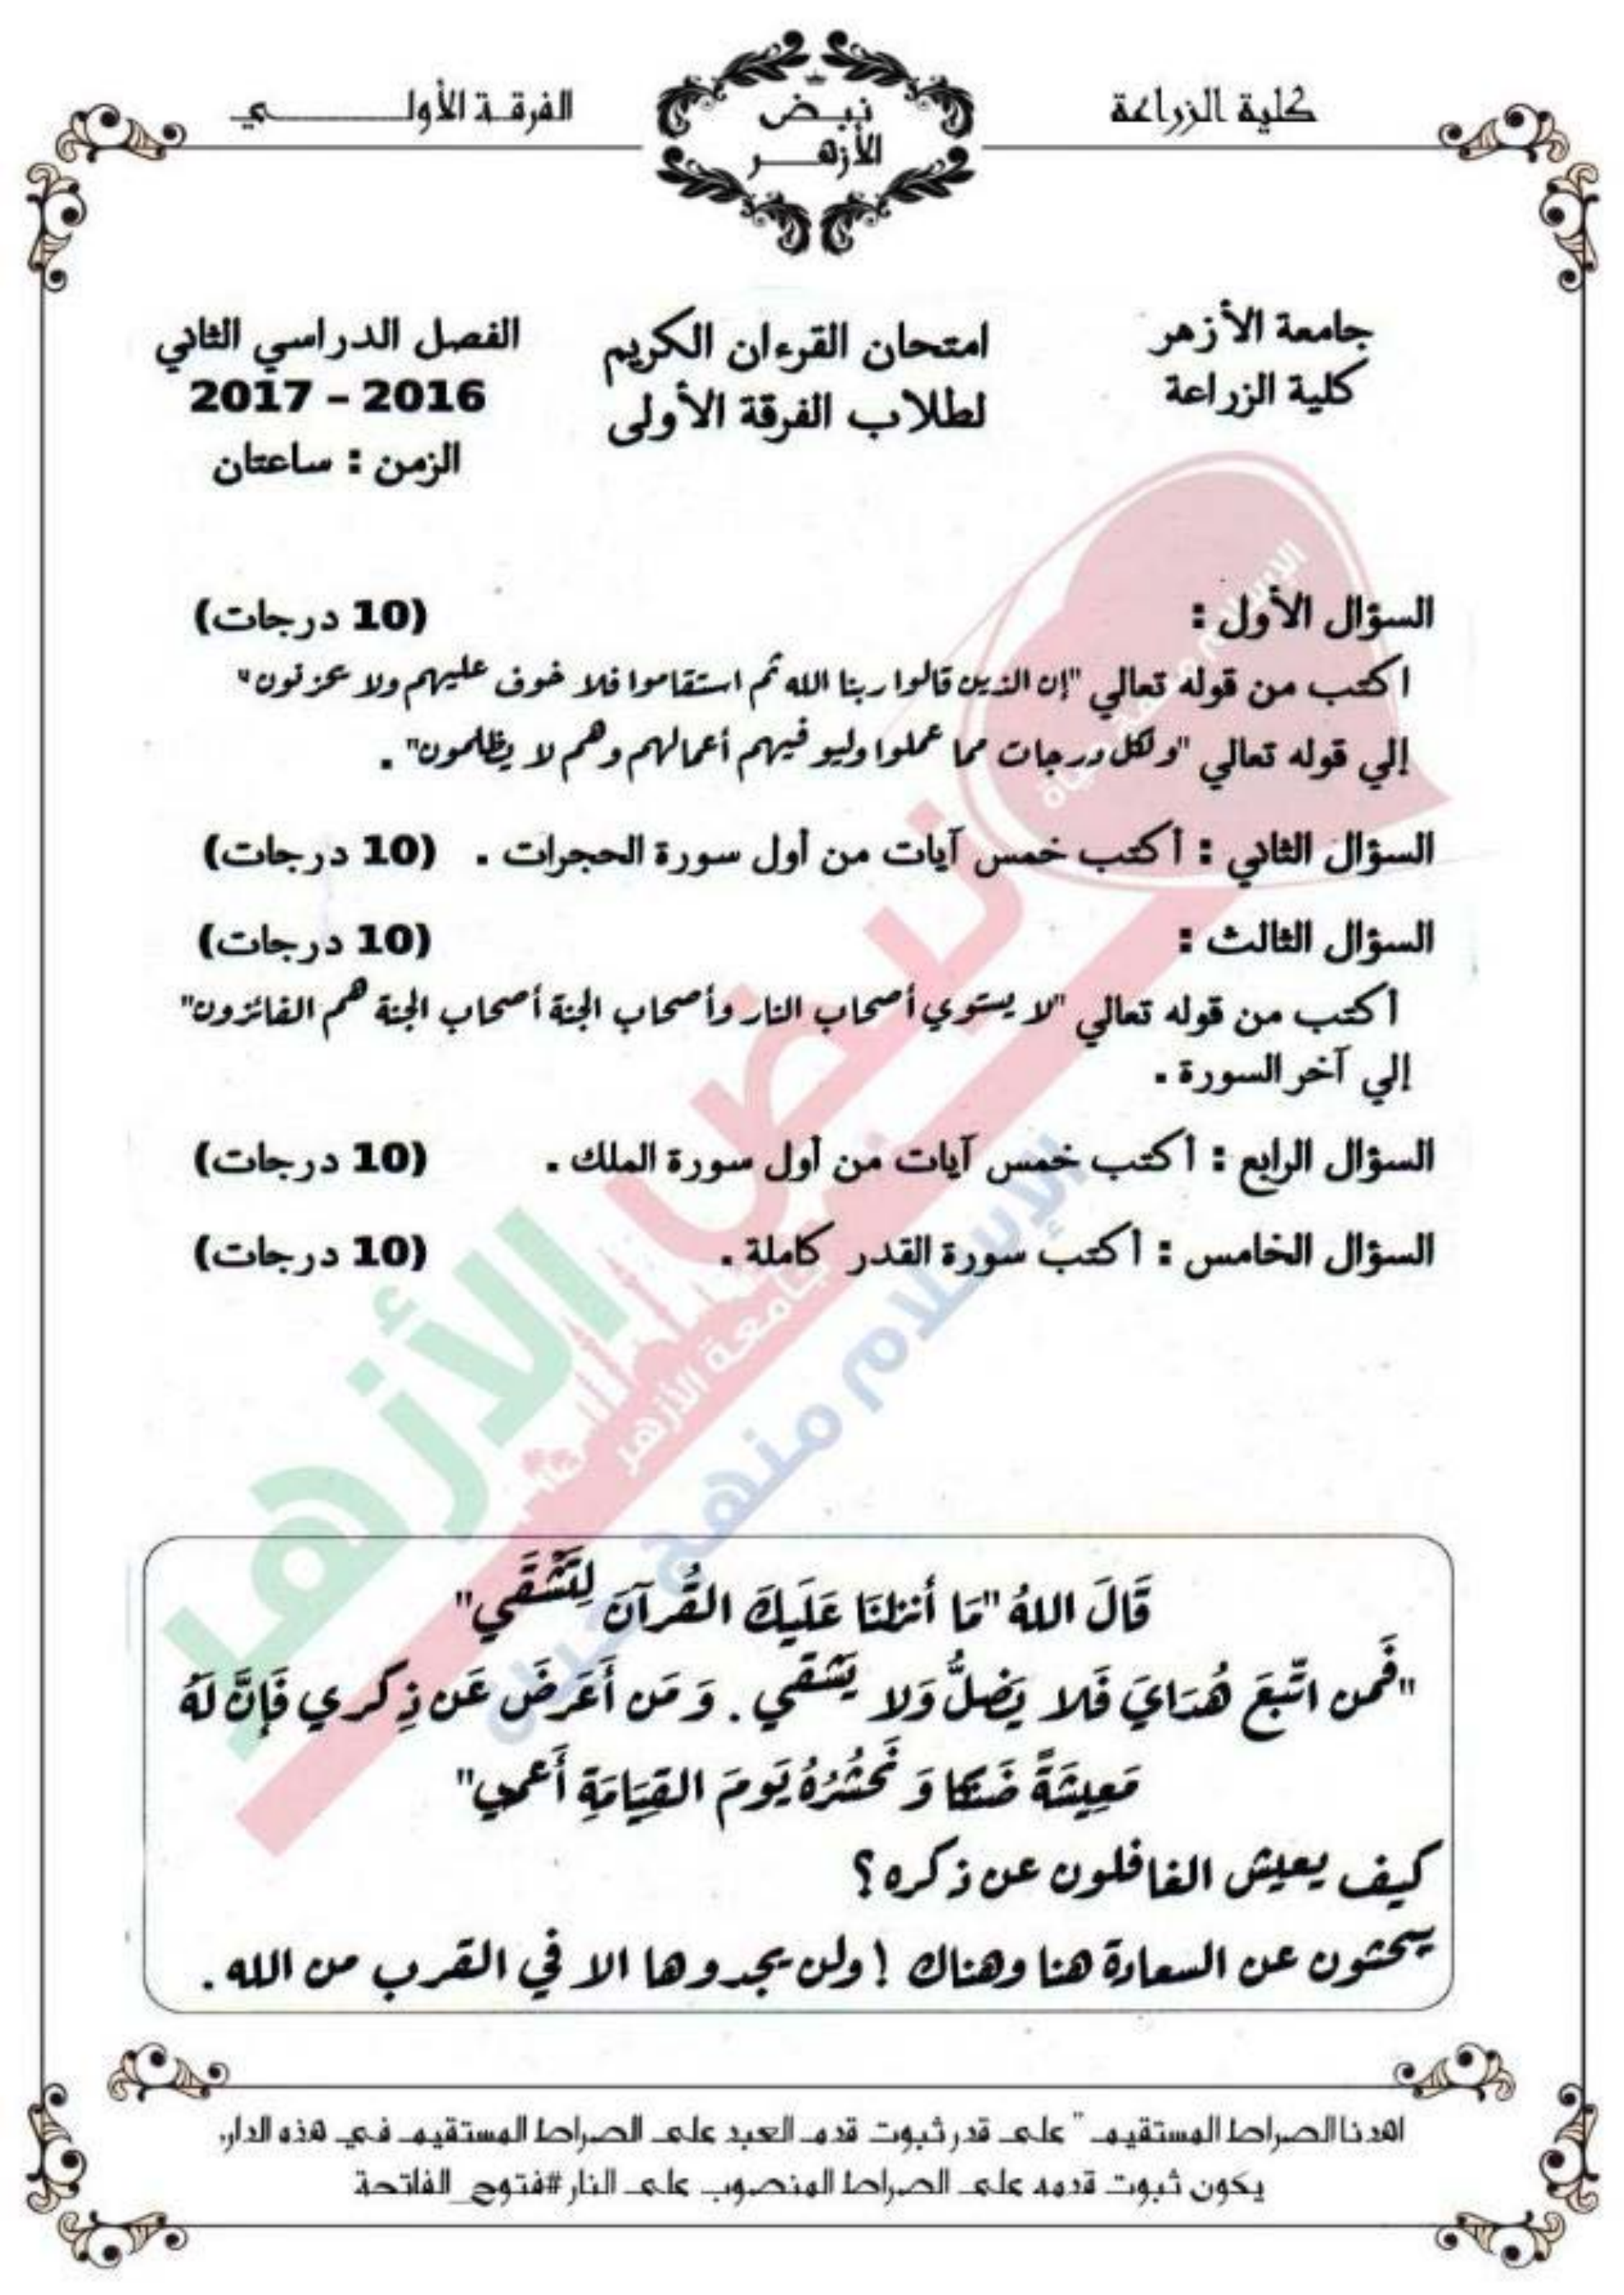 كلية الزراعة
نبض
الأزهر
الفرقة الأولي
جامعة الأزهر
كلية الزراعة
امتحان القرءان الكريم
لطلاب الفرقة الأولى
الفصل الدراسي الثاني
2016 – 2017
الزمن : ساعتان
السؤال الأول : (10 درجات)
اكتب من قوله تعالي "إن الذين قالوا ربنا الله ثم استقاموا فلا خوف عليهم ولا يحزنون"
إلي قوله تعالي "ولكل درجات مما عملوا وليوفيهم أعمالهم وهم لا يظلمون" .
السؤال الثاني : أكتب خمس آيات من أول سورة الحجرات . (10 درجات)
السؤال الثالث : (10 درجات)
أكتب من قوله تعالي "لا يستوي أصحاب النار وأصحاب الجنة أصحاب الجنة هم الفائزون"
إلي آخر السورة .
السؤال الرابع : أكتب خمس آيات من أول سورة الملك . (10 درجات)
السؤال الخامس : أكتب سورة القدر كاملة . (10 درجات)
نبض الأزهر
جامعة الأزهر
الإسلام منهج حياة
قَالَ اللهُ "مَا أنزلنَا عَلَيكَ القُرآنَ لِتَشْقَي"
"فَمن اتّبعَ هُدَايَ فَلا يَضلُّ وَلا يَشْقَي . وَ مَن أَعَرضَ عَن ذِكري فَإنَّ لَهُ
مَعِيشَةً ضَنكا وَ نَحْشُرُهُ يَومَ القِيَامَةِ أَعمي"
كيف يعيش الغافلون عن ذكره ؟
يبحثون عن السعادة هنا وهناك ! ولن يجدوها الا في القرب من الله .
اهدنا الصراط المستقيم " على قدر ثبوت قدم العبد على الصراط المستقيم في هذه الدار،
يكون ثبوت قدمه على الصراط المنصوب على النار #فتوح_الفاتحة